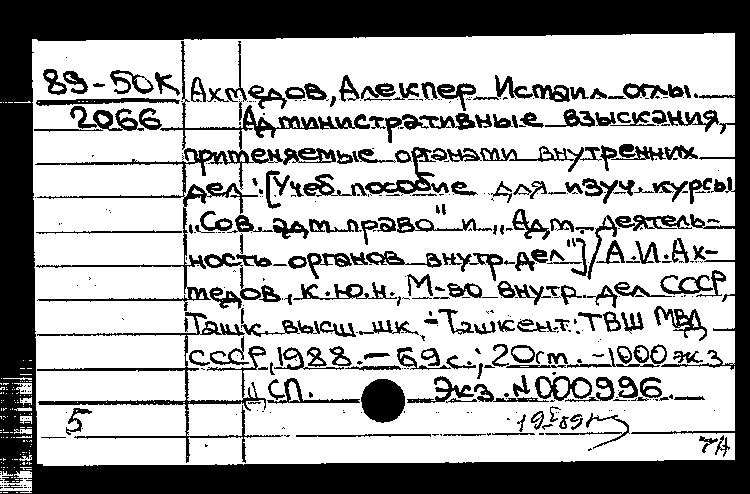 89-50К Ахмедов, Алекпер Исмаил оглы.
2066 Административные взыскания,
применяемые органами внутренних
дел : [Учеб. пособие для изуч. курсы
„Сов. адм. право" и „Адм. деятель-
ность органов внутр. дел"] / А.И. Ах-
медов, к.ю.н., М-во внутр. дел СССР,
Ташк. высш. шк. - Ташкент: ТВШ МВД
СССР, 1988. - 69 с.; 20 см. - 1000 экз.
СП. Экз. №000996.
5
7А